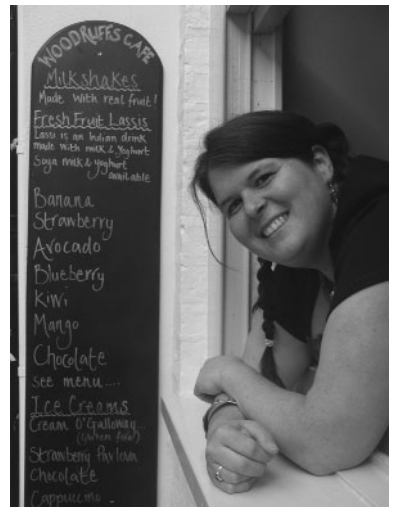 WOODRUFFS CAFE
Milkshakes
Made with real fruit!
Fresh Fruit Lassis
Lassi is an Indian drink
made with milk & Yoghurt
Soya milk & yoghurt
available
Banana
Strawberry
Avocado
Blueberry
Kiwi
Mango
Chocolate
see menu....
Ice Creams
Cream O'Galloway...
(Gluten free!)
Strawberry Pavlova
Chocolate
Cappuccino -